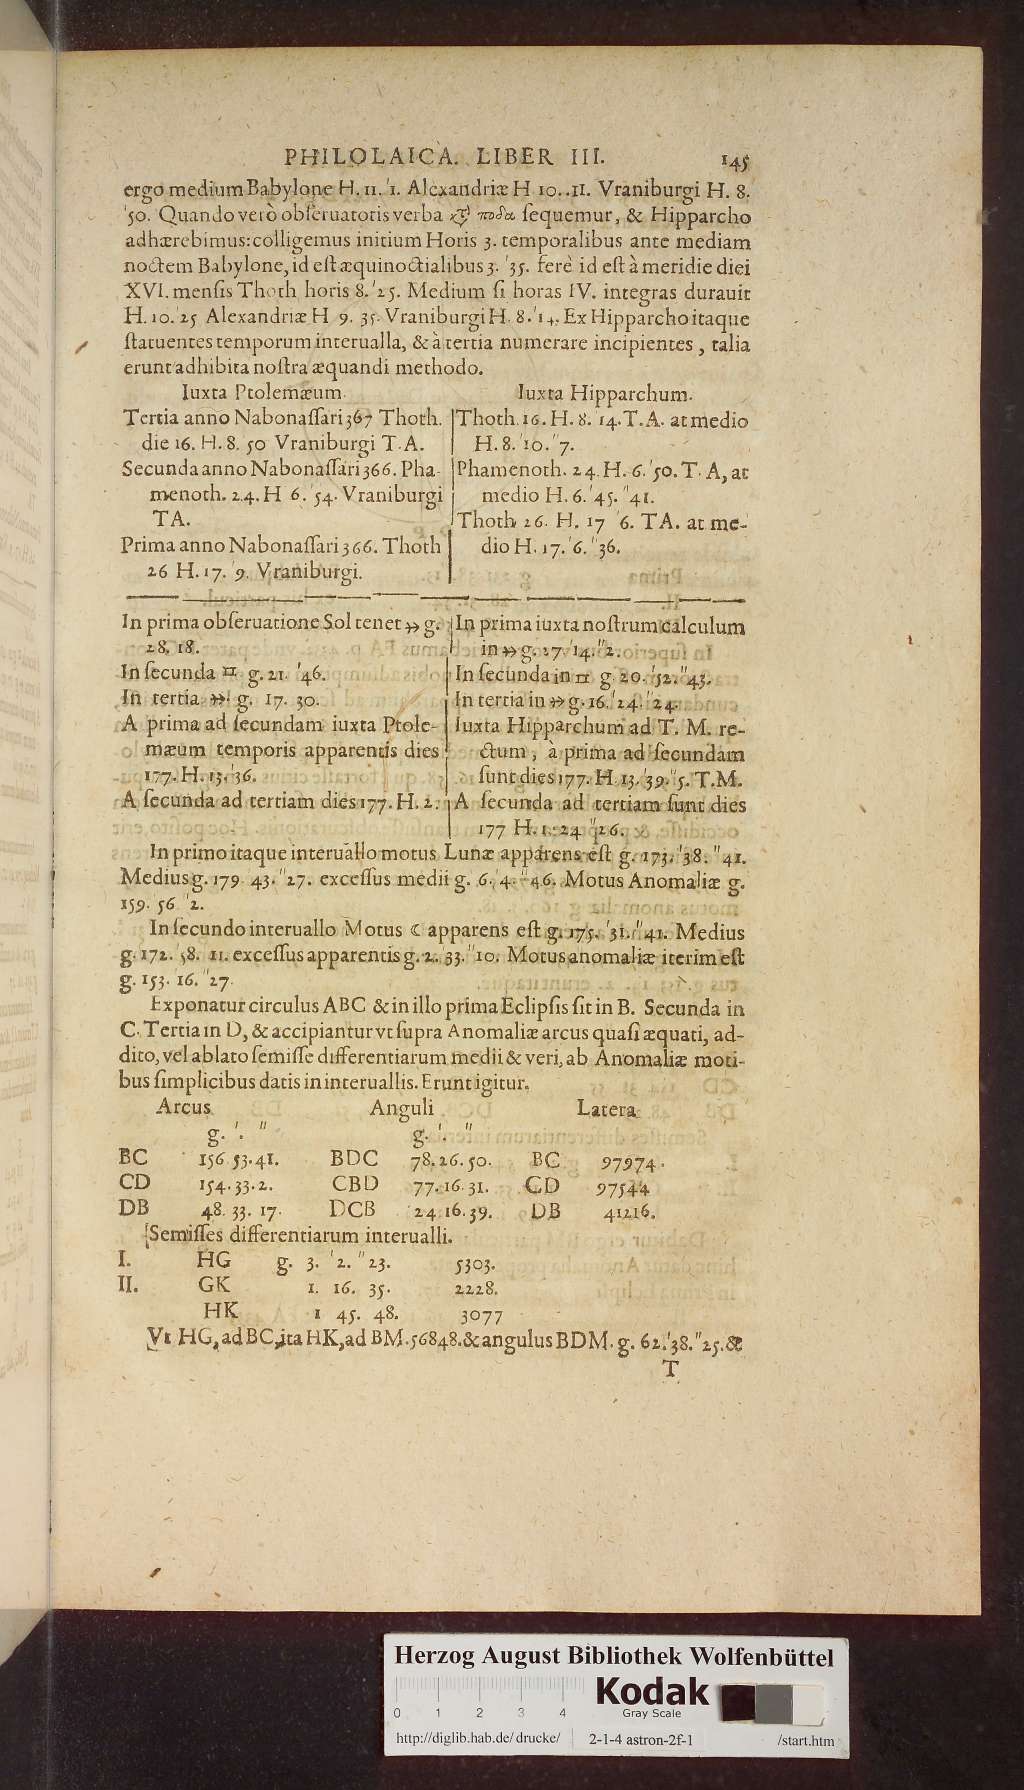 PHILOLAICA. LIBER III. 145
ergo medium Babylone H. 11. '1. Alexandriæ H 10. .11. Vraniburgi H. 8.
'50. Quando verò obſeruatoris verba ποδα ſequemur, & Hipparcho
adhærebimus: colligemus initium Horis 3. temporalibus ante mediam
noctem Babylone, id eſt æquinoctialibus 3. '35. ferè id eſt à meridie diei
XVI. menſis Thoth horis 8. '25. Medium ſi horas IV. integras durauit
H. 10. 25 Alexandriæ H 9. 35. Vraniburgi H. 8. '14. Ex Hipparcho itaque
ſtatuentes temporum interualla, & à tertia numerare incipientes, talia
erunt adhibita noſtra æquandi methodo.
Iuxta Ptolemæum.
Tertia anno Nabonaſſari 367 Thoth.
die 16. H. 8. 50 Vraniburgi T. A.
Secunda anno Nabonaſſari 366. Pha-
menoth. 24. H 6. '54. Vraniburgi
TA.
Prima anno Nabonaſſari 366. Thoth
26 H. 17. '9. Vraniburgi.
Iuxta Hipparchum.
Thoth. 16. H. 8. '14. T. A. at medio
H. 8. '10. "7.
Phamenoth. 24. H. 6. '50. T. A, at
medio H. 6. '45. "41.
Thoth 26. H. 17 '6. TA. at me-
dio H. 17. '6. "36.
In prima obſeruatione Sol tenet ♐ g.
28. 18.
In ſecunda ♊ g. 21. '46.
In tertia ♐ g. 17. 30.
A prima ad ſecundam iuxta Ptole-
mæum temporis apparentis dies
177. H. 13. '36.
A ſecunda ad tertiam dies 177. H. 2.
In prima iuxta noſtrum calculum
in ♐ g. 27. '14. "2.
In ſecunda in ♊ g. 20. '52. "43.
In tertia in ♐ g. 16. '24. "24.
Iuxta Hipparchum ad T. M. re-
ctum, à prima ad ſecundam
ſunt dies 177. H 13. '39. "5. T.M.
A ſecunda ad tertiam ſunt dies
177 H. 1. '24 "26.
In primo itaque interuallo motus Lunæ apparens eſt g. 173. '38. "41.
Medius g. 179. 43. "27. exceſſus medii g. 6. '4. "46. Motus Anomaliæ g.
159. '56 "2.
In ſecundo interuallo Motus ☾ apparens eſt g. 175. '31. "41. Medius
g. 172. '58. 11. exceſſus apparentis g. 2. '33. "10. Motus anomaliæ iterim eſt
g. 153. 16. "27.
Exponatur circulus ABC & in illo prima Eclipſis ſit in B. Secunda in
C. Tertia in D, & accipiantur vt ſupra Anomaliæ arcus quaſi æquati, ad-
dito, vel ablato ſemiſſe differentiarum medii & veri, ab Anomaliæ moti-
bus ſimplicibus datis in interuallis. Erunt igitur.
Arcus Anguli Latera
g. ' " g. ' "
BC 156 53. 41. BDC 78. 26. 50. BC 97974.
CD 154. 33. 2. CBD 77. 16. 31. CD 97544
DB 48. 33. 17. DCB 24 16. 39. DB 41216.
Semiſſes differentiarum interualli.
I. HG g. 3. '2. "23. 5303.
II. GK 1. 16. 35. 2228.
HK 1 45. 48. 3077
Vt HG, ad BC, ita HK, ad BM. 56848. & angulus BDM. g. 62. '38. "25. &
T
Herzog August Bibliothek Wolfenbüttel
Kodak
Gray Scale
0 1 2 3 4
http://diglib.hab.de/drucke/ 2-1-4 astron-2f-1 /start.htm